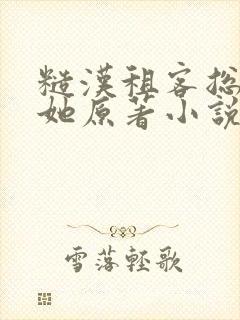 糙漢租客總
她原著小說
雪落輕歌